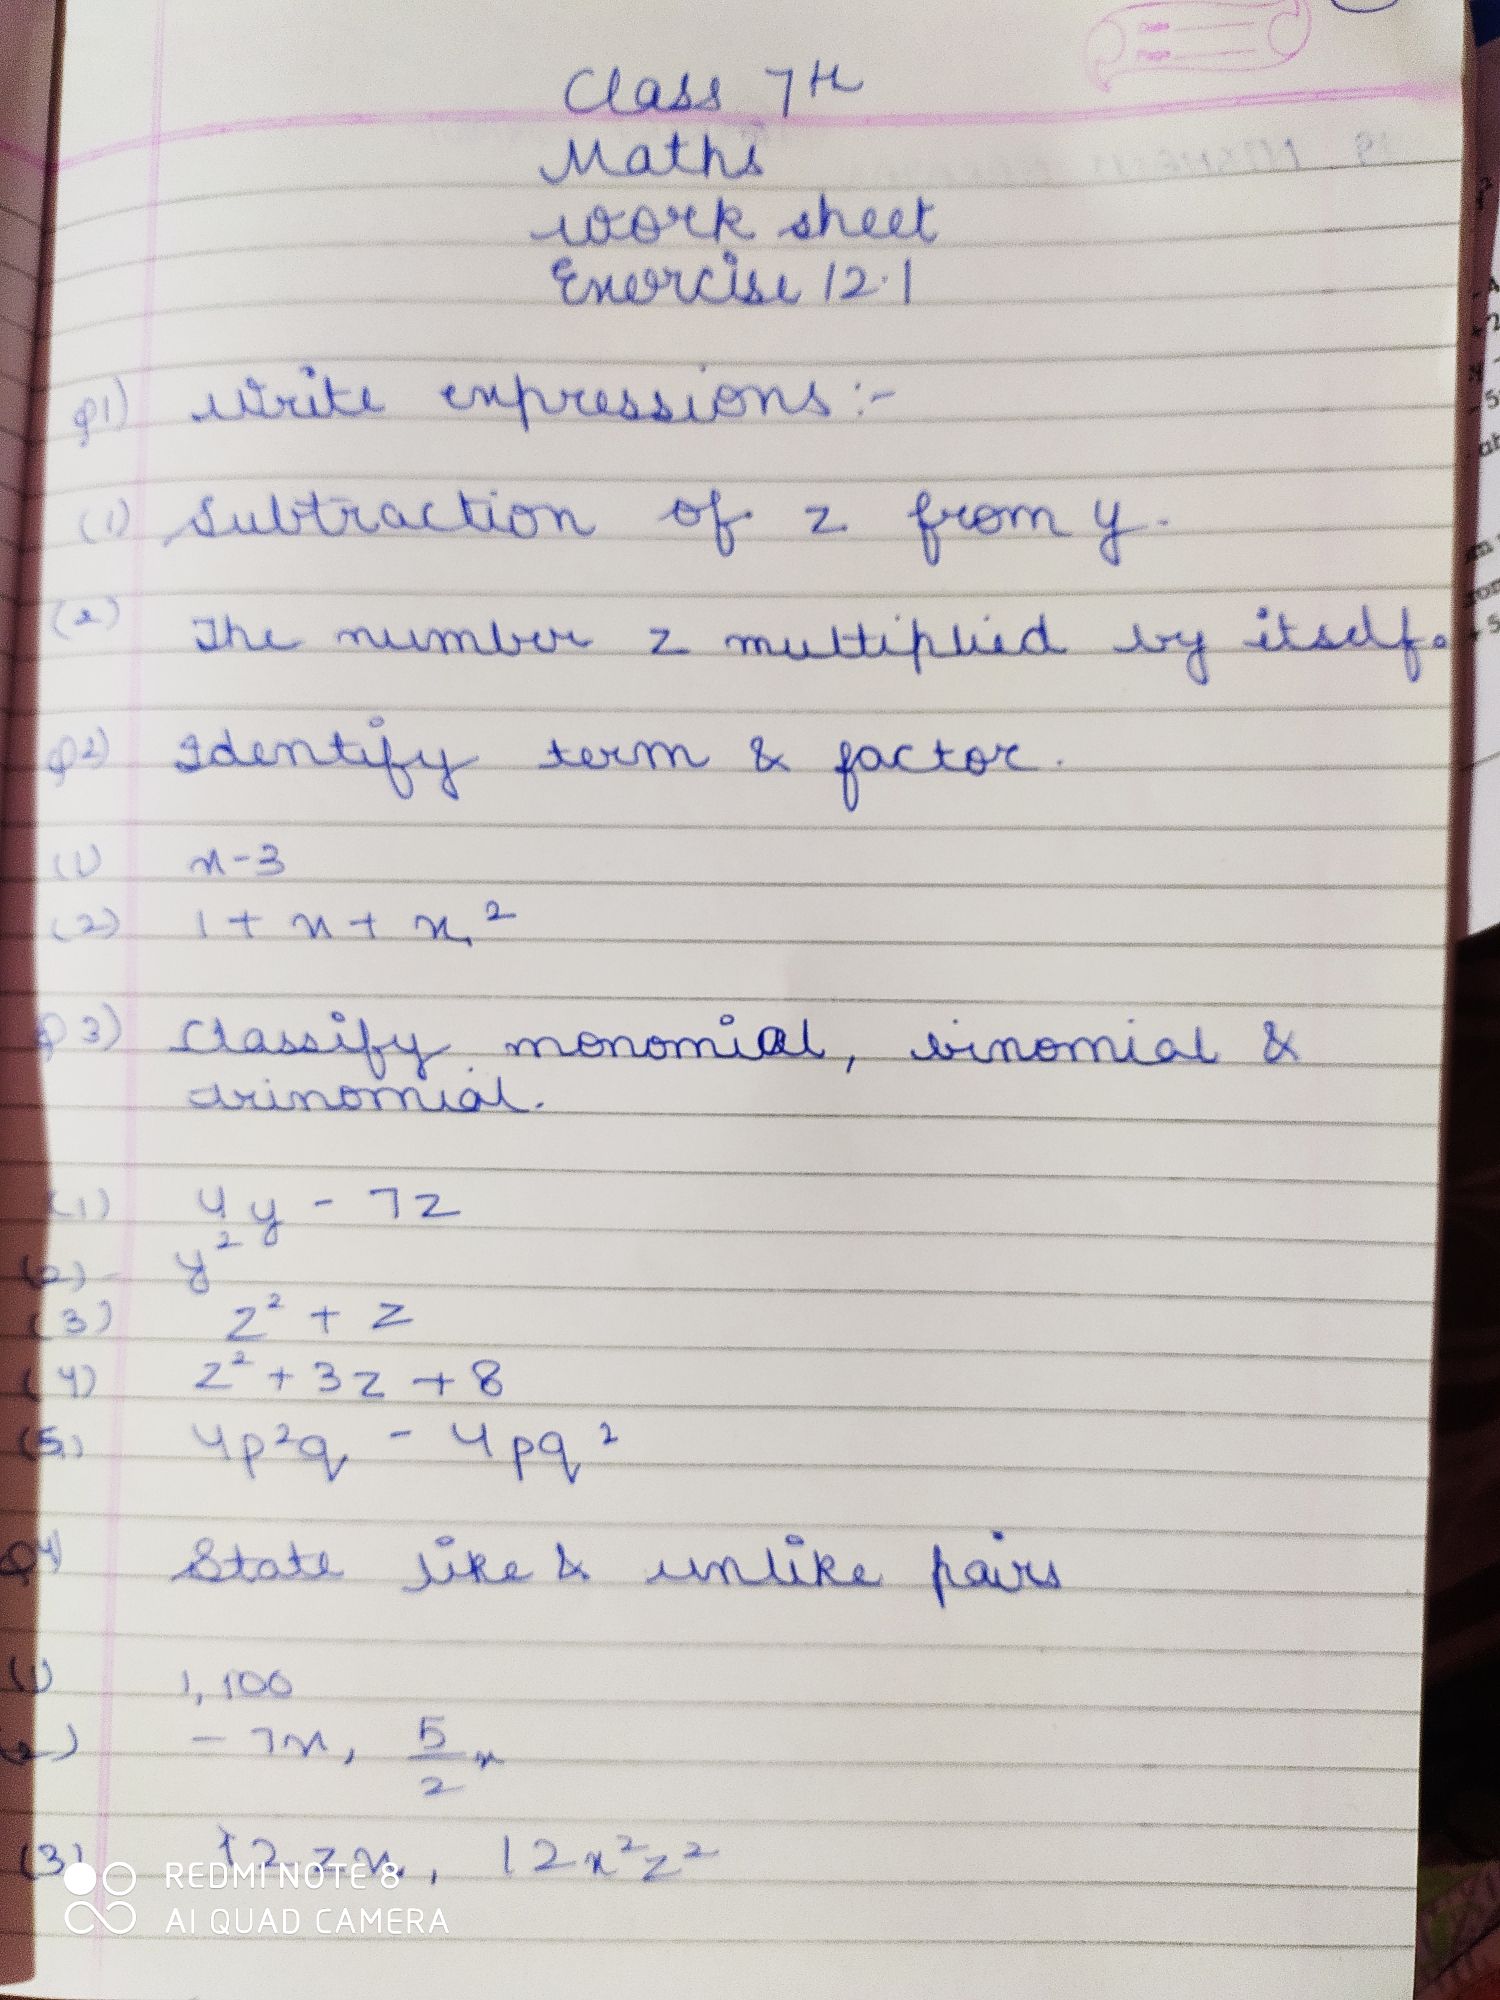 Class 7th
Maths
Work sheet
Exercise 12.1
Q1) Write expressions:-
(1) Subtraction of z from y.
(2) The number z multiplied by itself.
Q2) Identify term & factor.
(1) x-3
(2) 1 + x + x²
Q3) Classify monomial, binomial &
trinomial.
(1) 4y - 7z
(2) - y²
(3) z² + z
(4) z² + 3z + 8
(5) 4p²q - 4pq²
Q4) State like & unlike pairs
(1) 1, 100
(2) - 7x, 5/2 x
(3) 12zx, 12x²z²
REDMI NOTE 8
AI QUAD CAMERA